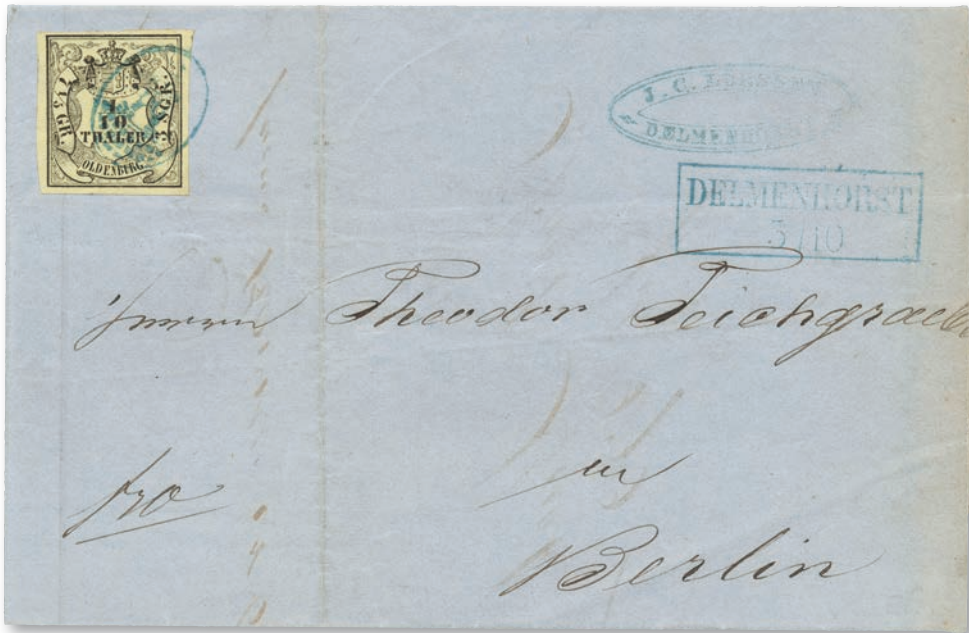 1
10
THALER
OLDENBURG
J. C.
DELMENHORST
DELMENHORST
3/10
Herrn Theodor Teichgraeber
fro
in
Berlin